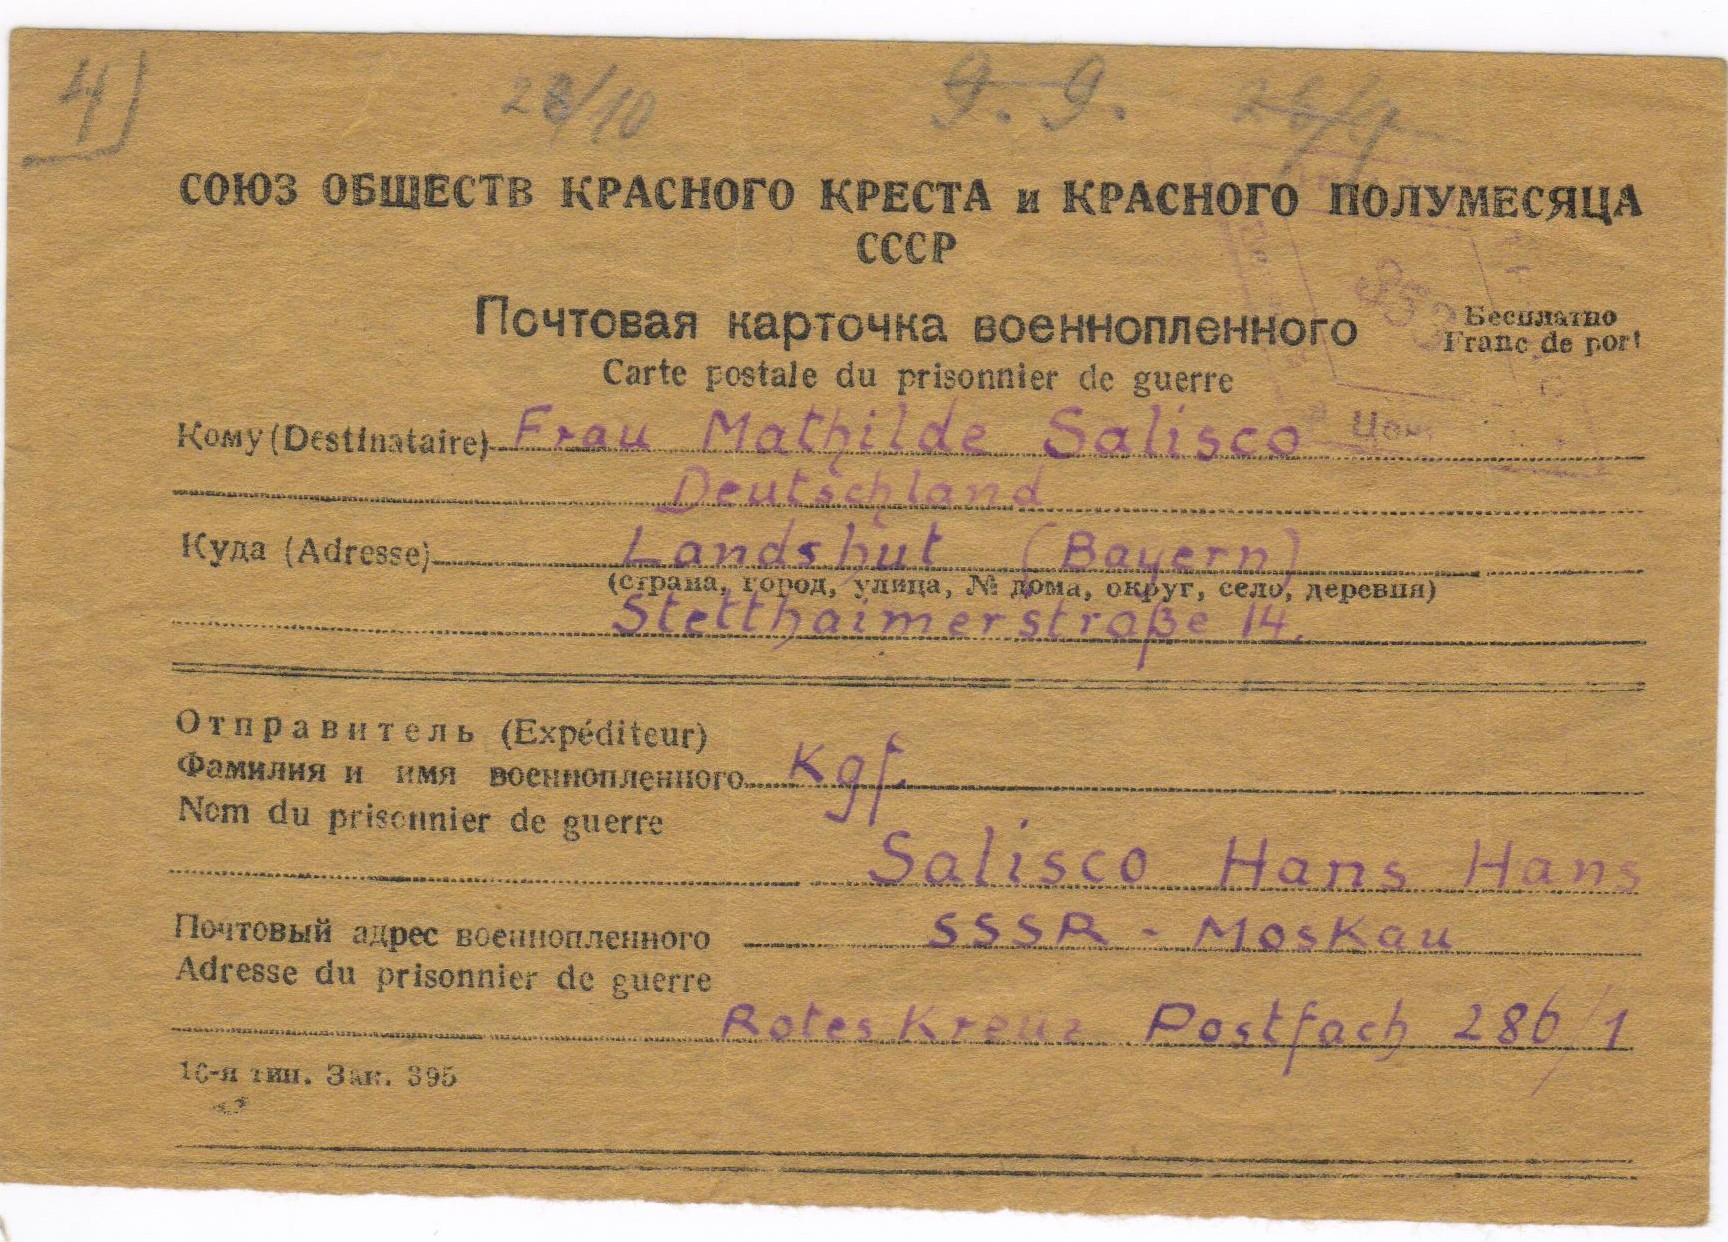 4)
28/10
9. 9.
26/9
СОЮЗ ОБЩЕСТВ КРАСНОГО КРЕСТА и КРАСНОГО ПОЛУМЕСЯЦА
СССР
Почтовая карточка военнопленного
Бесплатно
Franc de port
Carte postale du prisonnier de guerre
Кому (Destinataire) Frau Mathilde Salisco
Deutschland
Куда (Adresse) Landshut (Bayern)
(страна, город, улица, № дома, округ, село, деревня)
Stetthaimerstraße 14.
Отправитель (Expéditeur)
Фамилия и имя военнопленного Kgf.
Nom du prisonnier de guerre
Salisco Hans Hans
Почтовый адрес военнопленного SSSR - Moskau
Adresse du prisonnier de guerre
Rotes Kreuz Postfach 286/1
16-я тип. Зак. 395